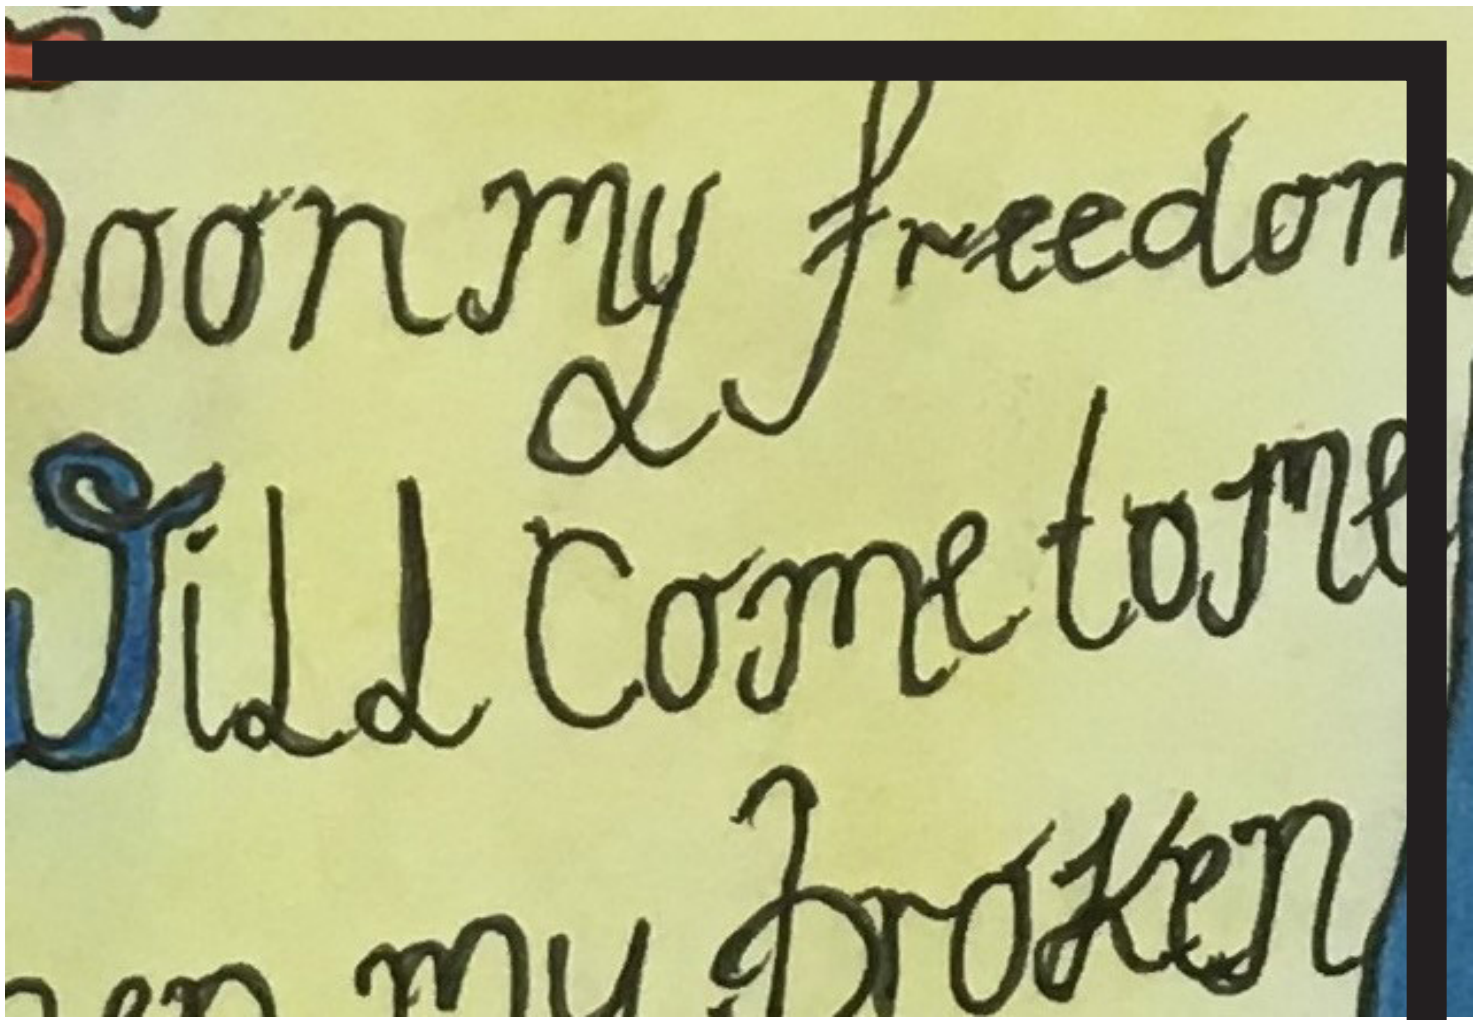 Soon my freedom
Will Come to me
my broken